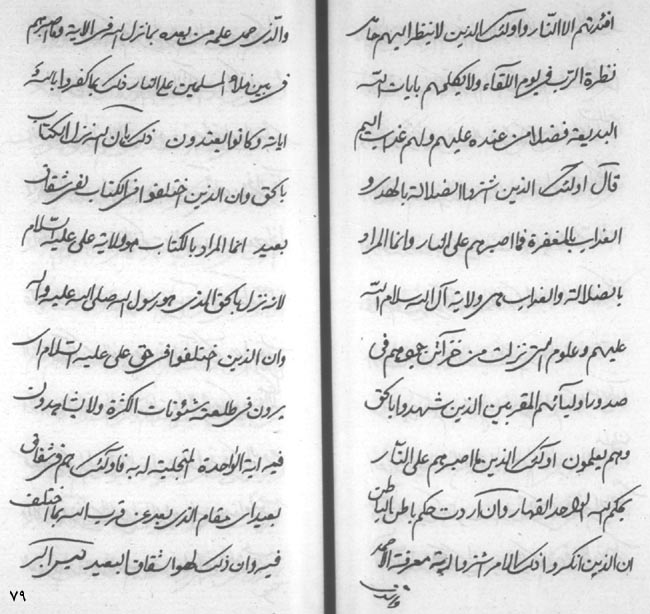 افئدتهم الا النار واولئك الذين لا ينظر اليهم
نظرة الرب في يوم اللقاء ولا يكلمهم بايات الله
البديعة فضلا من عنده عليهم ولهم عذاب اليم
قال اولئك الذين اشتروا الضلالة بالهدى و
العذاب بالمغفرة فما اصبرهم على النار وانما المراد
بالضلالة والعذاب هي ولاية آل الله سلام الله
عليهم وعلوم التي نزلت من خزآئن جودهم في
صدور اوليآئهم المقربين الذين شهدوا بالحق
وهم يعلمون اولئك الذين ما اصبرهم على النار
بحكم الله الواحد القهار وان اردت حكم باطن الباطن
ان الذين انكروا ذلك الامر اشتروا معرفة الاحد
والذي حمد علمه من بعده بما نزل الله في الاية وما اصبرهم
في بين ملاء المسلمين على النار ذلك بما كفروا بالله و
اياته وكانوا يعتدون ذلك بان الله نزل الكتاب
بالحق وان الذين اختلفوا في الكتاب لفي شقاق
بعيد انما المراد بالكتاب هو ولاية علي عليه السلام
لانه نزل بالحق الذي هو رسول الله صلى الله عليه واله
وان الذين اختلفوا في حق علي عليه السلام اي
يرون في طلعته شئونات الكثرة ولا يشاهدون
فيه اية الواحدة المتجلية له به فاولئك هم في شقاق
بعيد اي مقام الذي بعد عن قرب الله بما اختلف
فيه وان ذلك لهو الشقاق البعيد ليس اكبر
٧٩